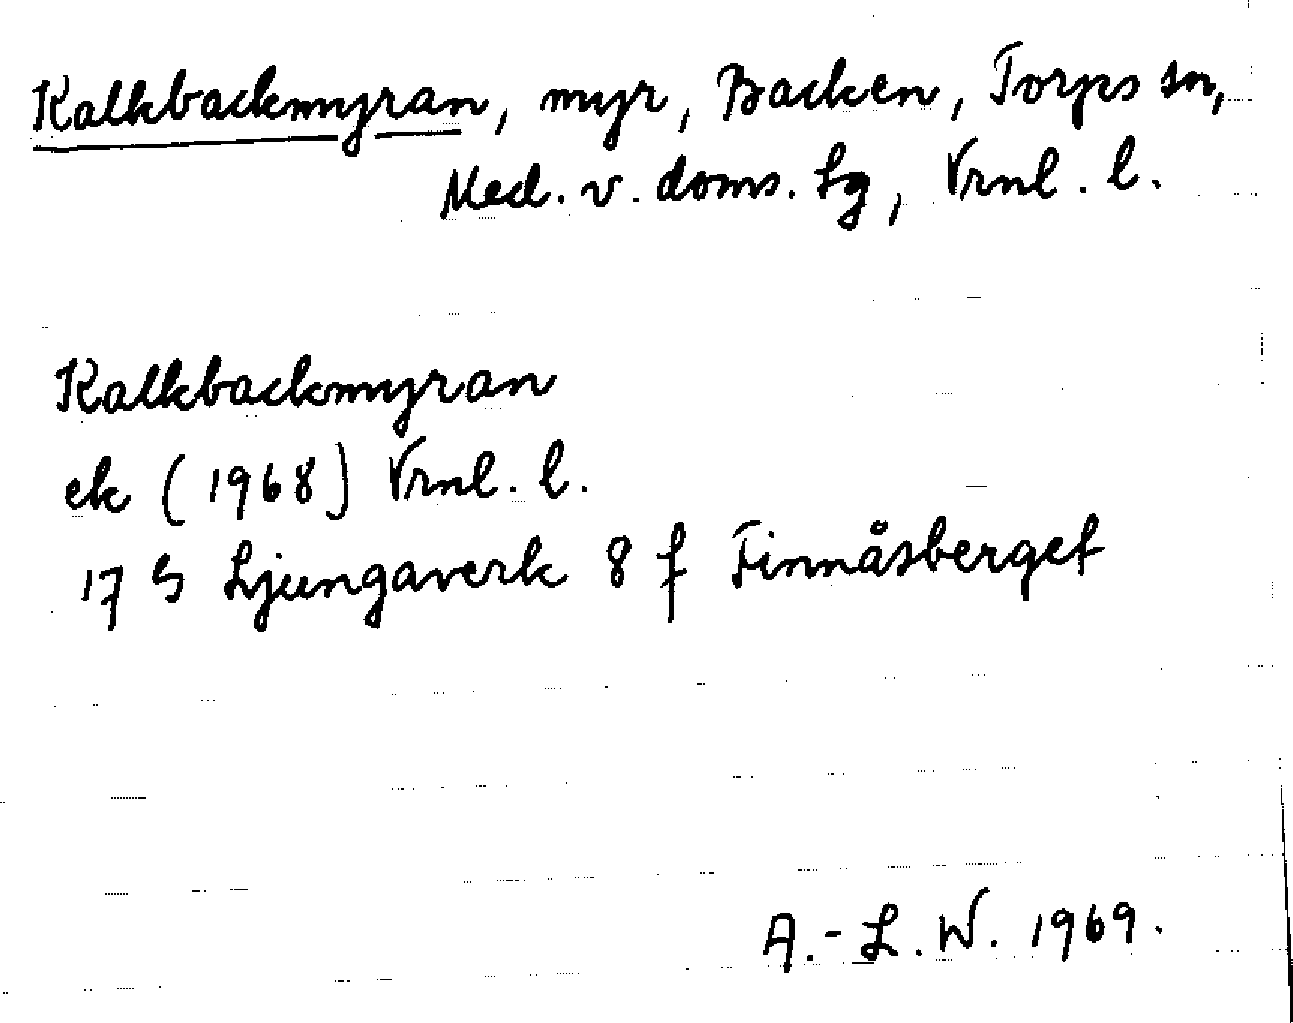 Kalkbackmyran, myr, Backen, Torps sn,
Med. v. doms. lg, Vrnl. l.
Kalkbackmyran
ek (1968) Vrnl. l.
17 G Ljungaverk 8 f Finnåsberget
A.-L. W. 1969.